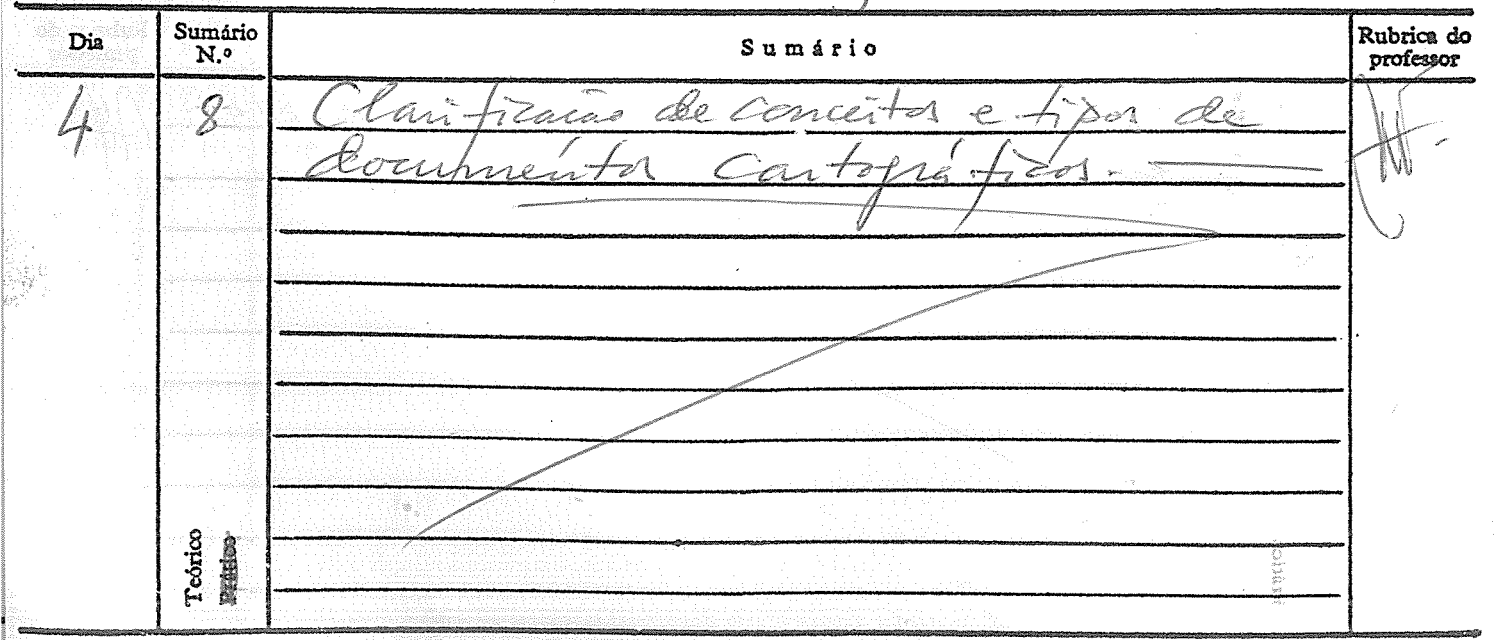 Dia
Sumário N.º
Sumário
Rubrica do professor
4
8
Clarificação de conceitos e tipos de
documentos cartográficos.
Teórico
Prático